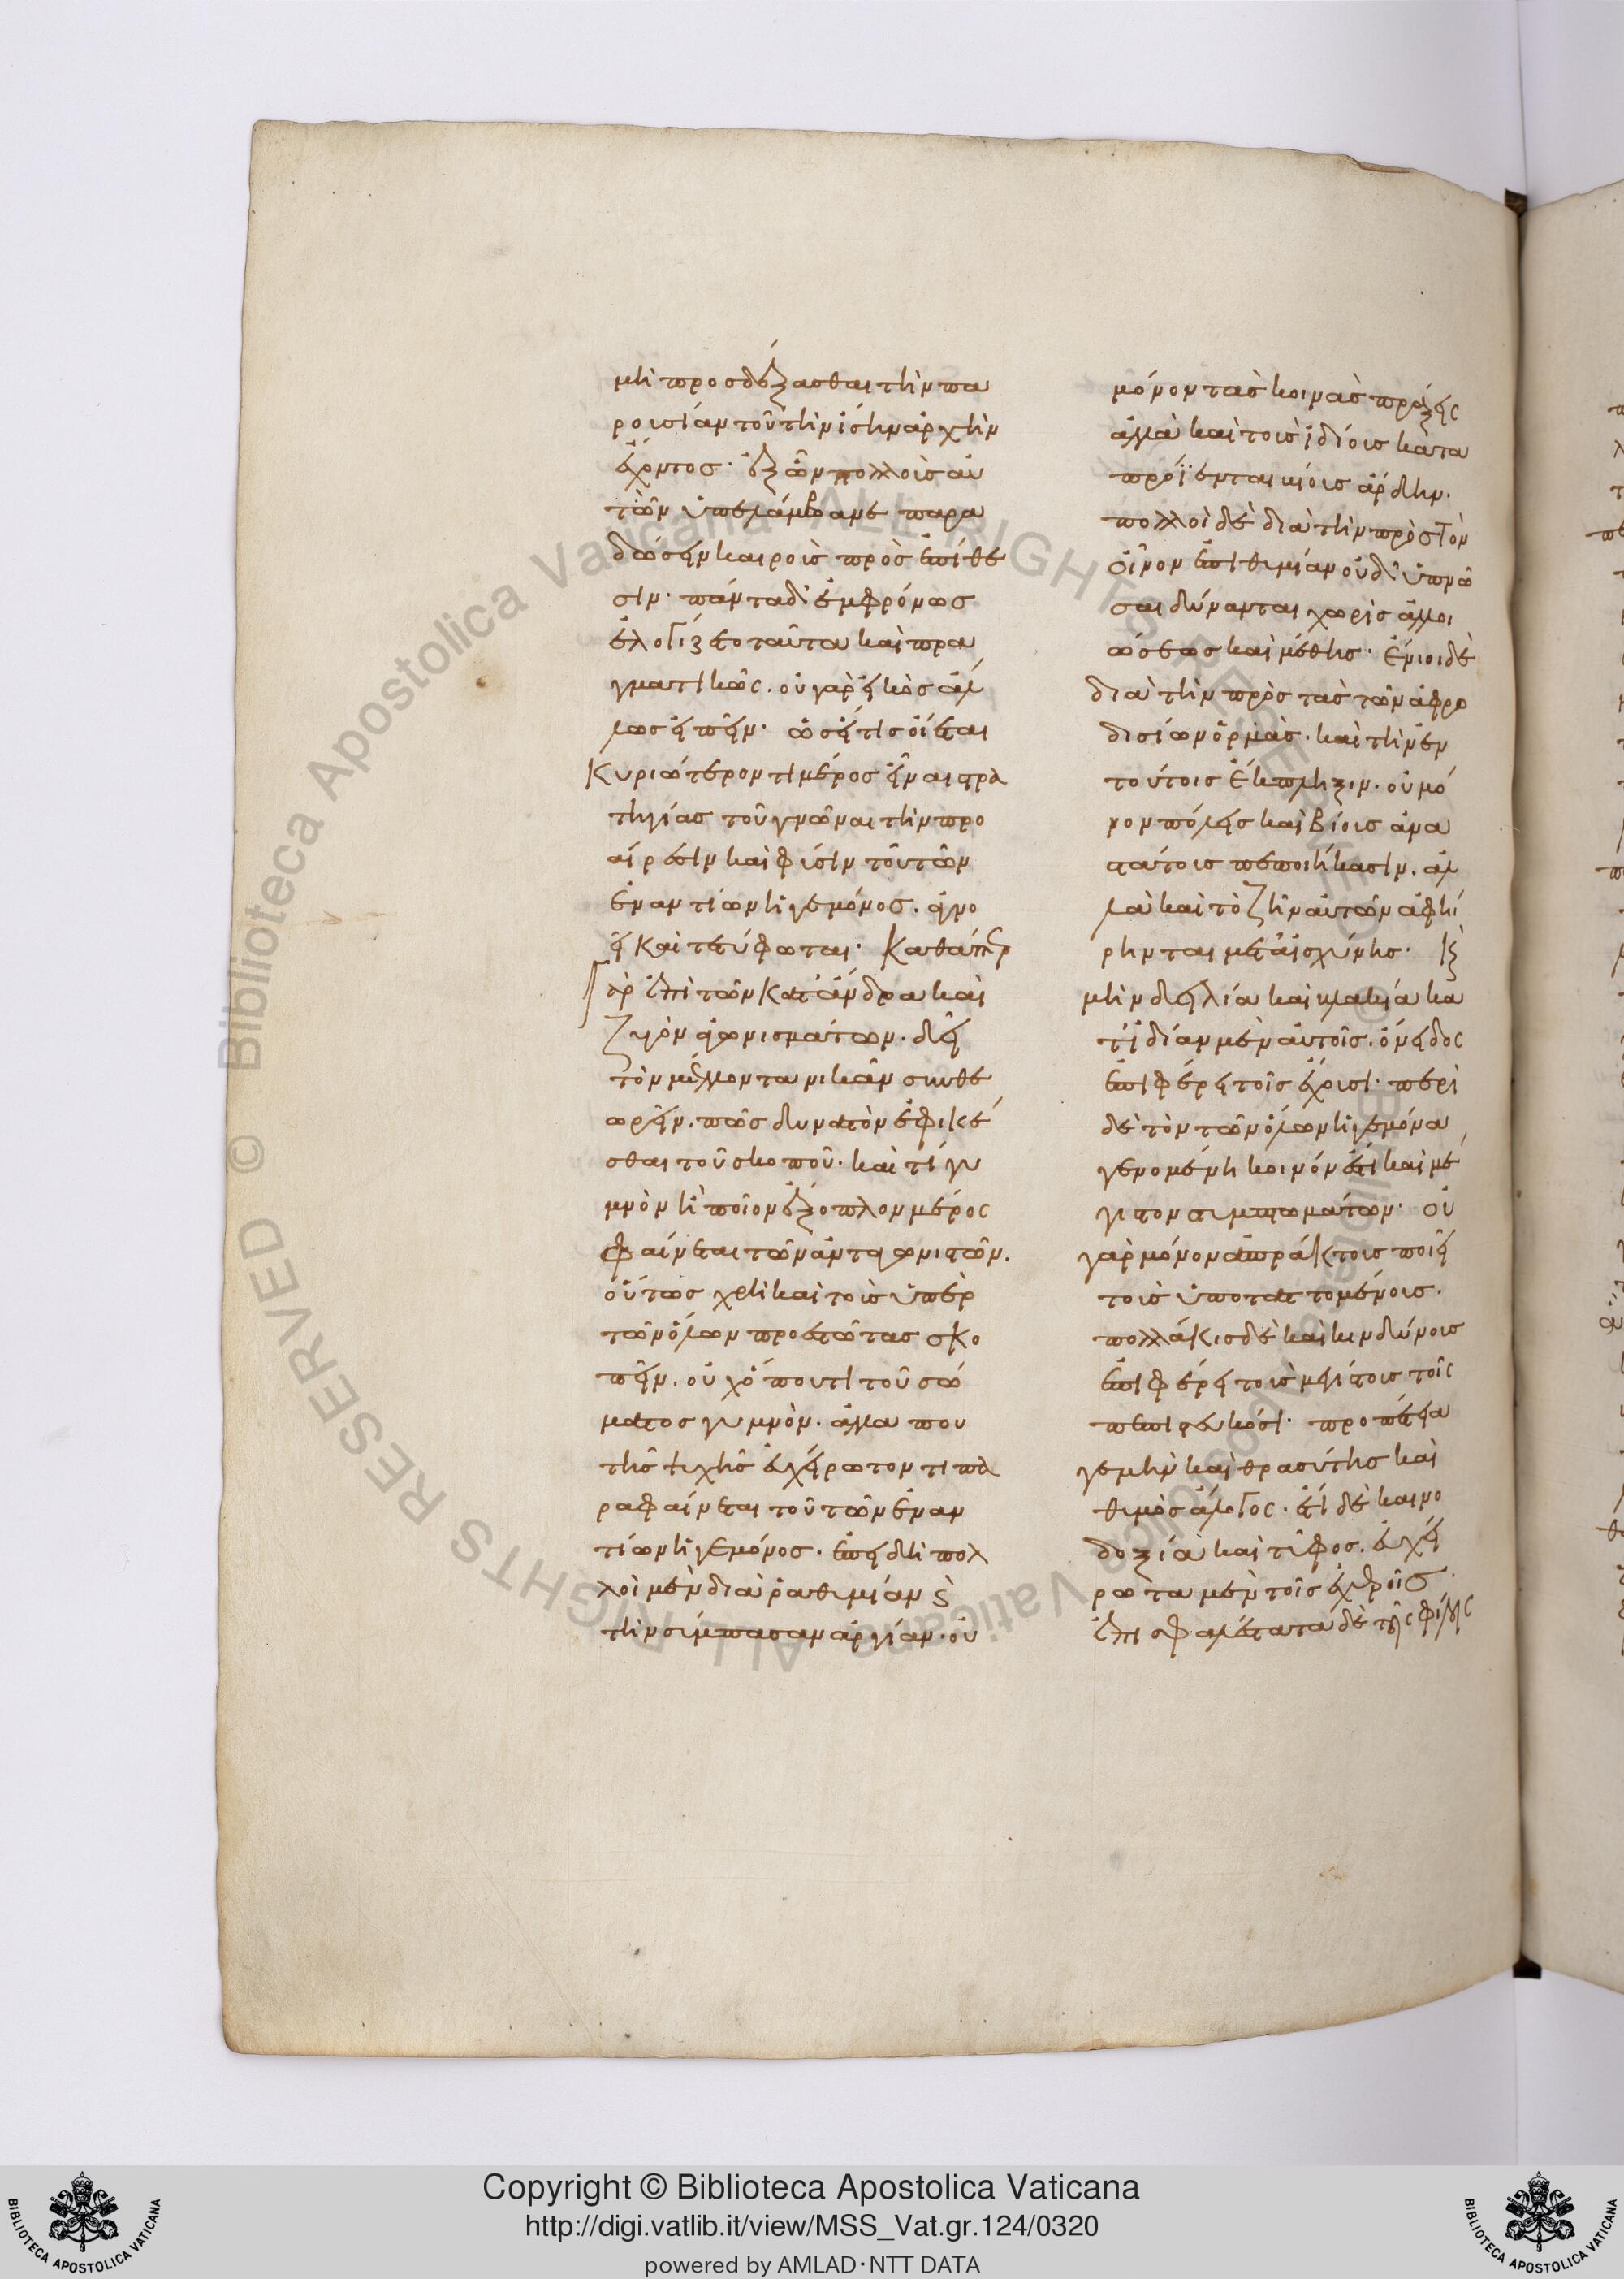 μὴ προσδέξασθαι τὴν πα
ρουσίαν τοῦ τὴν ἴσην ἀρχὴν
ἔχοντος· ἐξ ὧν πολλοὺς αὐ
τῶν ὑπελάμβανε παρα
δώσειν καιροὺς πρὸς ἐπίθε
σιν· πάντα δ' ἐμφρόνως
ἐλογίζετο ταῦτα καὶ πρα
γματικῶς. οὐ γὰρ εἰκὸς ἄλ
λως εἰπεῖν· ὡς εἴ τις οἴεται
κυριώτερόν τι μέρος εἶναι στρα
τηγίας τοῦ γνῶναι τὴν προ
αίρεσιν καὶ φύσιν τοῦ τῶν
ἐναντίων ἡγεμόνος. ἀγνο
εῖ καὶ τετύφωται· καθάπερ
γὰρ ἐπὶ τῶν κατ' ἄνδρα καὶ
ζυγὸν ἀγωνισμάτων. δεῖ
τὸν μέλλοντα νικᾶν συνθε
ωρεῖν. πῶς δυνατὸν ἐφικέ
σθαι τοῦ σκοποῦ· καὶ τί γυ
μνὸν ἢ ποῖον ἔξοπλον μέρος
φαίνεται τῶν ἀνταγωνιστῶν.
οὕτως χρὴ καὶ τοὺς ὑπὲρ
τῶν ὅλων προεστῶτας σκο
πεῖν. οὐχ ὅπου τι τοῦ σώ
ματος γυμνόν. ἀλλὰ που
τῆς ψυχῆς εὐχείρωτόν τι πα
ραφαίνεται τοῦ τῶν ἐναν
τίων ἡγεμόνος. ἐπειδὴ πολ
λοὶ μὲν διὰ ῥαθυμίαν καὶ
τὴν σύμπασαν ἀργίαν. οὐ
μόνον τὰς κοινὰς πράξεις
ἀλλὰ καὶ τοὺς ἰδίους κατα
προΐενται βίους ἄρδην.
πολλοὶ δὲ διὰ τὴν πρὸς τὸν
οἶνον ἐπιθυμίαν οὐδ' ὑπνῶ
σαι δύνανται χωρὶς ἀλλοι
ώσεως καὶ μέθης· ἔνιοι δὲ
διὰ τὴν πρὸς τὰς τῶν ἀφρο
δισίων ὁρμὰς. καὶ τὴν ἐν
τούτοις ἔκπληξιν. οὐ μό
νον πόλεις καὶ βίους ἀνα
στάτους πεποιήκασιν. ἀλ
λὰ καὶ τὸ ζῆν αὑτῶν ἀφῄ
ρηνται μετ' αἰσχύνης· καὶ
μὴν δειλία καὶ βλακεία κα
τ' ἰδίαν μὲν αὐτοῖς. ὄνειδος
ἐπιφέρει τοῖς ἔχουσι· περὶ
δὲ τὸν τῶν ὅλων ἡγεμόνα
γενομένη κοινόν ἐστι καὶ μέ
γιστον συμπτωμάτων· οὐ
γὰρ μόνον ἀπράκτους ποιεῖ
τοὺς ὑποταττομένους.
πολλάκις δὲ καὶ κινδύνους
ἐπιφέρει τοὺς μεγίστους τοῖς
πεπιστευκόσι· προπέτεια
γε μὴν καὶ θρασύτης καὶ
θυμὸς ἄλογος. ἔτι δὲ κενο
δοξία καὶ τῦφος. εὐχεί
ρωτα μὲν τοῖς ἐχθροῖς
ἐπισφαλέστατα δὲ τοῖς φίλοις